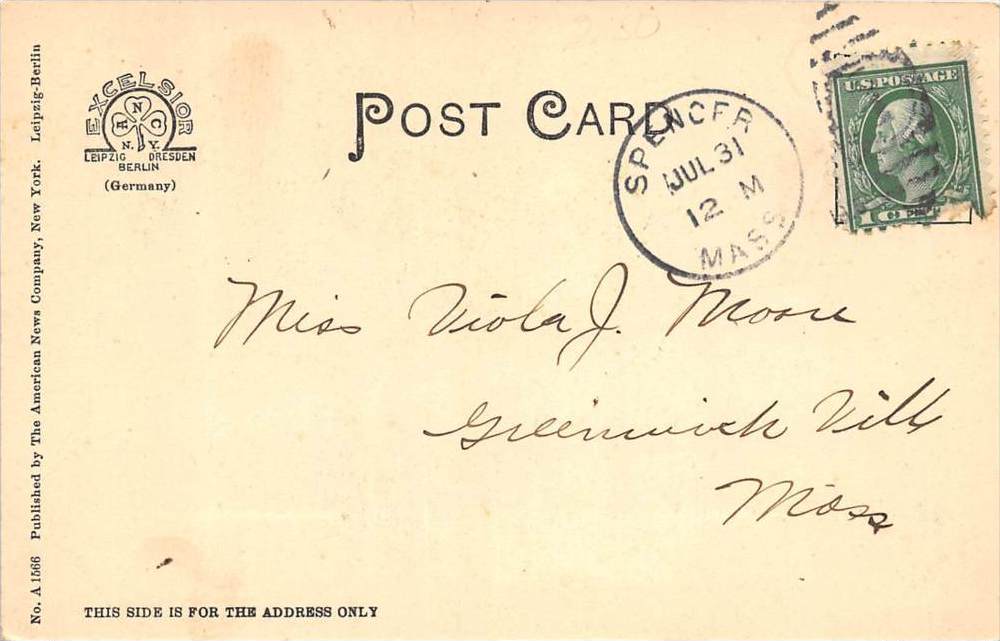 POST CARD
EXCELSIOR
A N C
N. Y.
LEIPZIG DRESDEN
BERLIN
(Germany)
SPENCER
JUL 31
12 M
MASS
U.S. POSTAGE
Miss Viola J. Moore
Greenwich Vill
Mass
No. A 1566 Published by The American News Company, New York. Leipzig-Berlin
THIS SIDE IS FOR THE ADDRESS ONLY